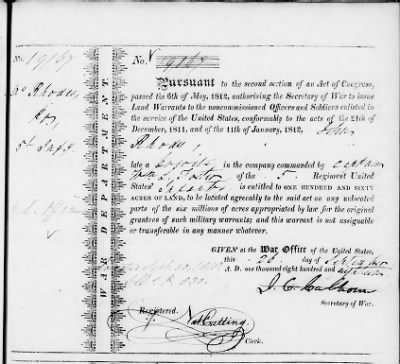 No. 19167
No. 19167
Jno Rhodes,
Pursuant to the second section of an Act of Congress,
passed the 6th of May, 1812, authorising the Secretary of War to issue
Land Warrants to the noncommissioned Officers and Soldiers enlisted in
the service of the United States, conformably to the acts of the 24th of
December, 1811, and of the 11th of January, 1812, John
Rhodes,
5th Inf.
late a in the company commanded by Captain
of the 5. Regiment United
States' Infantry is entitled to ONE HUNDRED AND SIXTY
ACRES OF LAND, to be located agreeably to the said act on any unlocated
parts of the six millions of acres appropriated by law for the original
grantees of such military warrants; and this warrant is not assignable
or transferable in any manner whatever.
WAR DEPARTMENT.
GIVEN at the War Office of the United States,
this 26 day of September
A. D. one thousand eight hundred and
J. C. Calhoun
Secretary of War.
Registered.
Clerk.